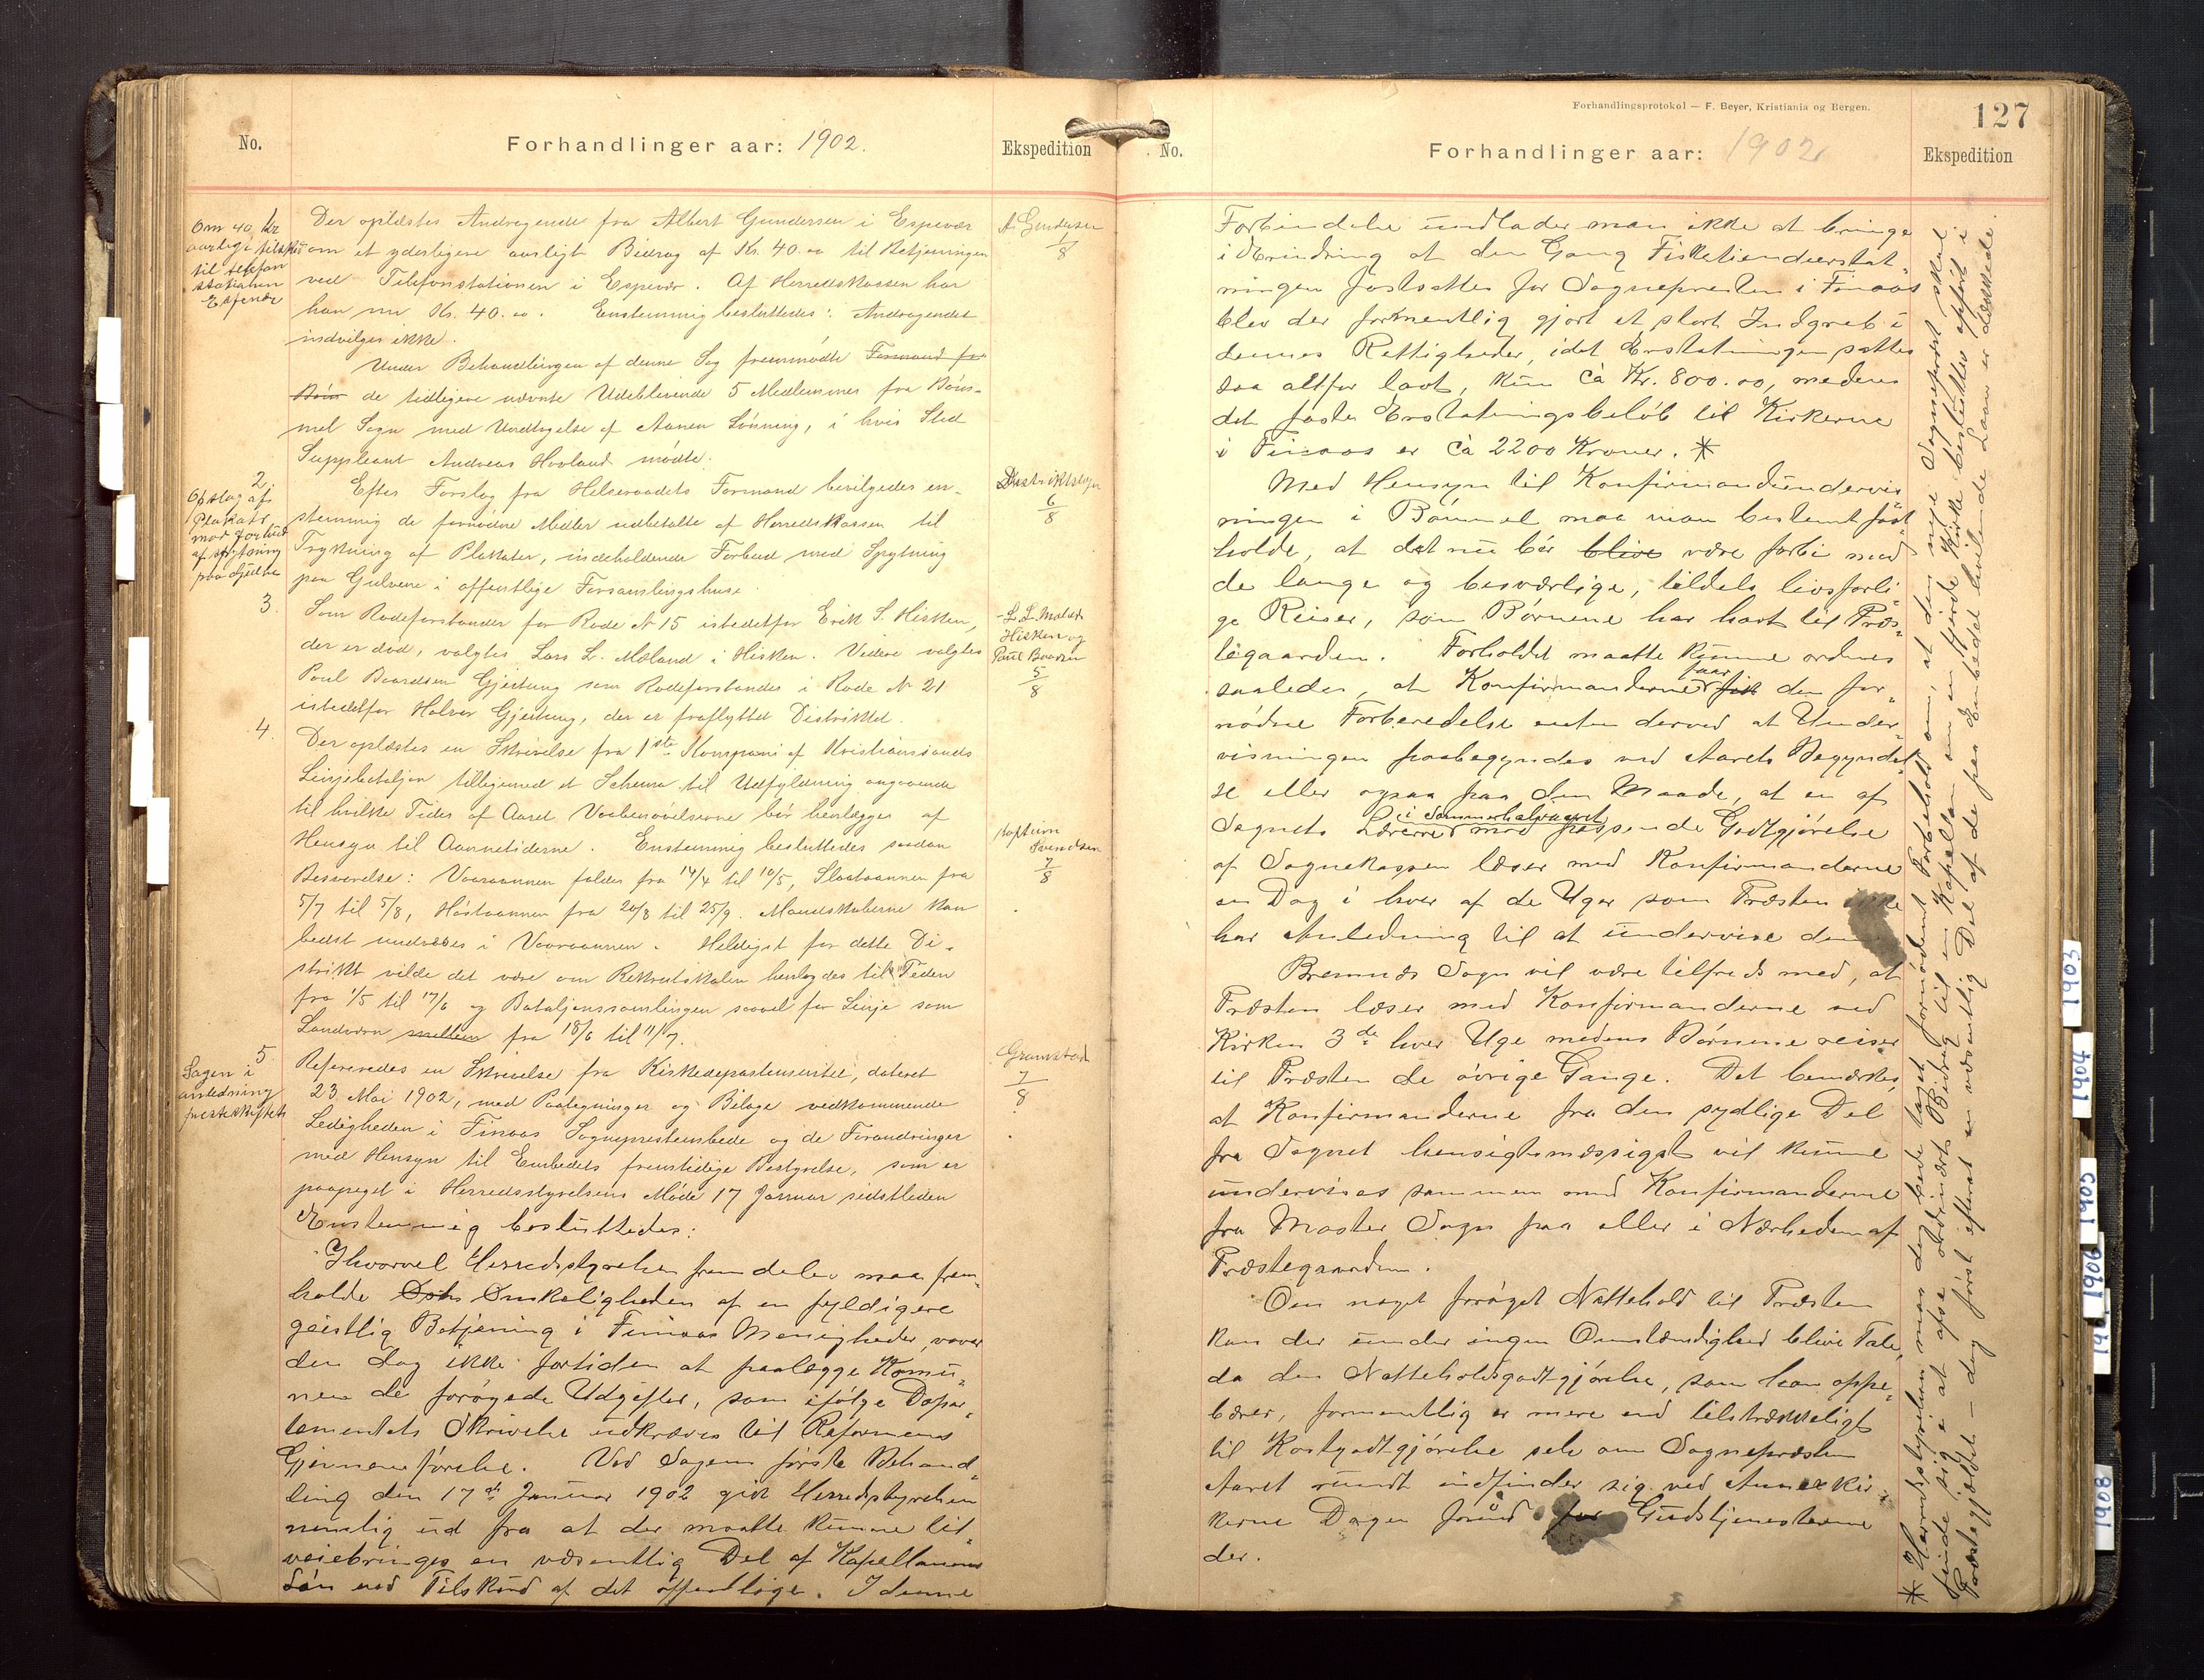 No.
Forhandlinger aar: 1902.
Ekspedition
Om 40 Kr
aarligt tilskud
til telefon
stationen
Espevær
Der oplæstes Andragende fra Albert Gundersen i Espevær
om et yderligere aarligt Bidrag af Kr. 40.00 til Betjeningen
ved Telefonstationen i Espevær. Af Herredskassen har
han nu Kr. 40.00. Enstemmig besluttedes: Andragendet
indvilges ikke.
Under Behandlingen af denne Sag fremmødte Formand for
Bøm de tidligere nævnte Udeblivende 5 Medlemmer fra Bøm-
mel Sogn med Undtagelse af Aanen Lønning, i hvis Sted
Suppleant Andreas Hovland mødte.
A. Gundersen
1/8
2.
Opslag af
Plakater
mod forbud
af spytning
paa Gulvene
Efter Forslag fra Helseraadets Formand bevilgedes en-
stemmig de fornødne Midler udbetalte af Herredskassen til
Trykning af Plakater, indeholdende Forbud med Spytning
paa Gulvene i offentlige Forsamlingshuse.
Distriktslægen
6/8
3.
Som Rodeforstander for Rode № 15 istedetfor Erik S. Hisken,
der er død, valgtes Lars L. Mæland i Hisken. Videre valgtes
Poul Baardsen Gjeitung som Rodeforstander i Rode № 21
istedetfor Halvor Gjeitung, der er fraflyttet Distriktet.
L. L. Mæland
Hisken og
Paul Baardsen
5/8
4.
Der oplæstes en Skrivelse fra 1ste Kompani af Kristianssands
Linjebataljon tilligemed et Schema til Udfyldning angaaende
til hvilke Tider af Aaret Vaabenøvelserne bør henlægges af
Hensyn til Aannetiderne. Enstemmig besluttedes saadan
Besvarelse: Vaaraannen falder fra 14/4 til 10/5, Slaataannen fra
5/7 til 5/8, Høstaannen fra 20/8 til 25/9. Mandskaberne kan
bedst undværes i Vaaraannen. Heldigst for dette Di-
strikt vilde det være om Rekrutskolen henlagdes til Tiden
fra 1/5 til 17/6 og Bataljonssamlingen saavel for Linje som
Landværn mellem fra 18/6 til 11/7.
Kaptein
Svendsen
7/8
5.
Sagen i
anledning
presteskiftet
Refereredes en Skrivelse fra Kirkedepartementet, dateret
23. Mai 1902, med Paategninger og Bilage vedkommende
Ledigheden i Finaas Sogneprestembede og de Forandringer
med Hensyn til Embedets fremtidige Bestyrelse, som er
paapeget i Herredsstyrelsens Møde 17 Januar sidstleden
Enstemmig besluttedes:
Ihvorvel Herredsstyrelsen fremdeles maa frem-
holde Øsk Ønskeligheden af en fyldigere
geistlig Betjening i Finaas Menigheder, vover
den dog ikke fortiden at paalægge Komu-
nen de forøgede Udgifter, som ifølge Depar-
tementets Skrivelse udkræves til Reformens
Gjennemførelse. Ved Sagens første Behand-
ling den 17de Januar 1902 gik Herredsstyrelsen
nemlig ud fra at der maatte kunne til-
veiebringes en væsentlig Del af Kapellanens
Løn ved Tilskud af det offentlige. I denne
Gramstad
7/8
Forhandlingsprotokol — F. Beyer, Kristiania og Bergen.
127
No.
Forhandlinger aar: 1902
Ekspedition
Forbindelse undlader man ikke at bringe
i Erindring at den Gang Fisketiendeerstat-
ningen fastsattes for Sognepresten i Finaas
blev der formentlig gjort et stort Indgreb i
dennes Rettigheder, idet Erstatningen sattes
saa altfor lavt, kun cà Kr. 800.00, medens
det faste Erstatningsbeløb til Kirkerne
i Finaas er cà 2200 Kroner. *
Med Hensyn til Konfirmandundervis-
ningen i Bømmel maa man bestemt fast-
holde, at det nu bør blive være forbi med
de lange og besværlige, tildels livsfarli-
ge Reiser, som Børnene har havt til Præs-
tegaarden. Forholdet maatte kunne ordnes
saaledes, at Konfirmanderne faar fik den for-
nødne Forberedelse enten derved at Under-
visningen paabegyndes ved Aarets Begyndel-
se eller ogsaa paa den Maade, at en af
Sognets Lærerne i Sommerhalvaaret mod passende Godtgjørelse
af Sognekassen læser med Konfirmanderne
en Dag i hver af de Uger som Præsten ikke
har Anledning til at undervise dem.
Bremnes Sogn vil være tilfreds med, at
Præsten læser med Konfirmanderne ved
Kirken 3de hver Uge medens Børnene reiser
til Præsten de øvrige Gange. Det bemærkes
at Konfirmanderne fra den sydlige Del
fra Sognet hensigtsmæssigst vil kunne
undervises sammen med Konfirmanderne
fra Moster Sogn paa eller i Nærheden af
Præstegaarden.
Om noget forøget Nattehold til Præsten
kan der under ingen Omstændighed blive Tale,
da den Natteholdsgodtgjørelse, som han oppe-
bærer, formentlig er mere end tilstrækkeligt
til Kostgodtgjørelse selv om Sognepræsten
Aaret rundt indfinder sig ved Annexkir-
kerne Dagen forud for Gudstjenesterne
der.
* Herredsstyrelsen maa derhos tage fornødent Forbehold om, at den nye Sognepræst skal
finde sig i at afse ordinært Bidrag til en Kapellan om en fjerde Kirke besluttes opført i
Præstegjældet – dog først efterat en væsentlig Del af de paa Embedet hvilende Laan er dækkede.
1903
1904
1905
1906
1908